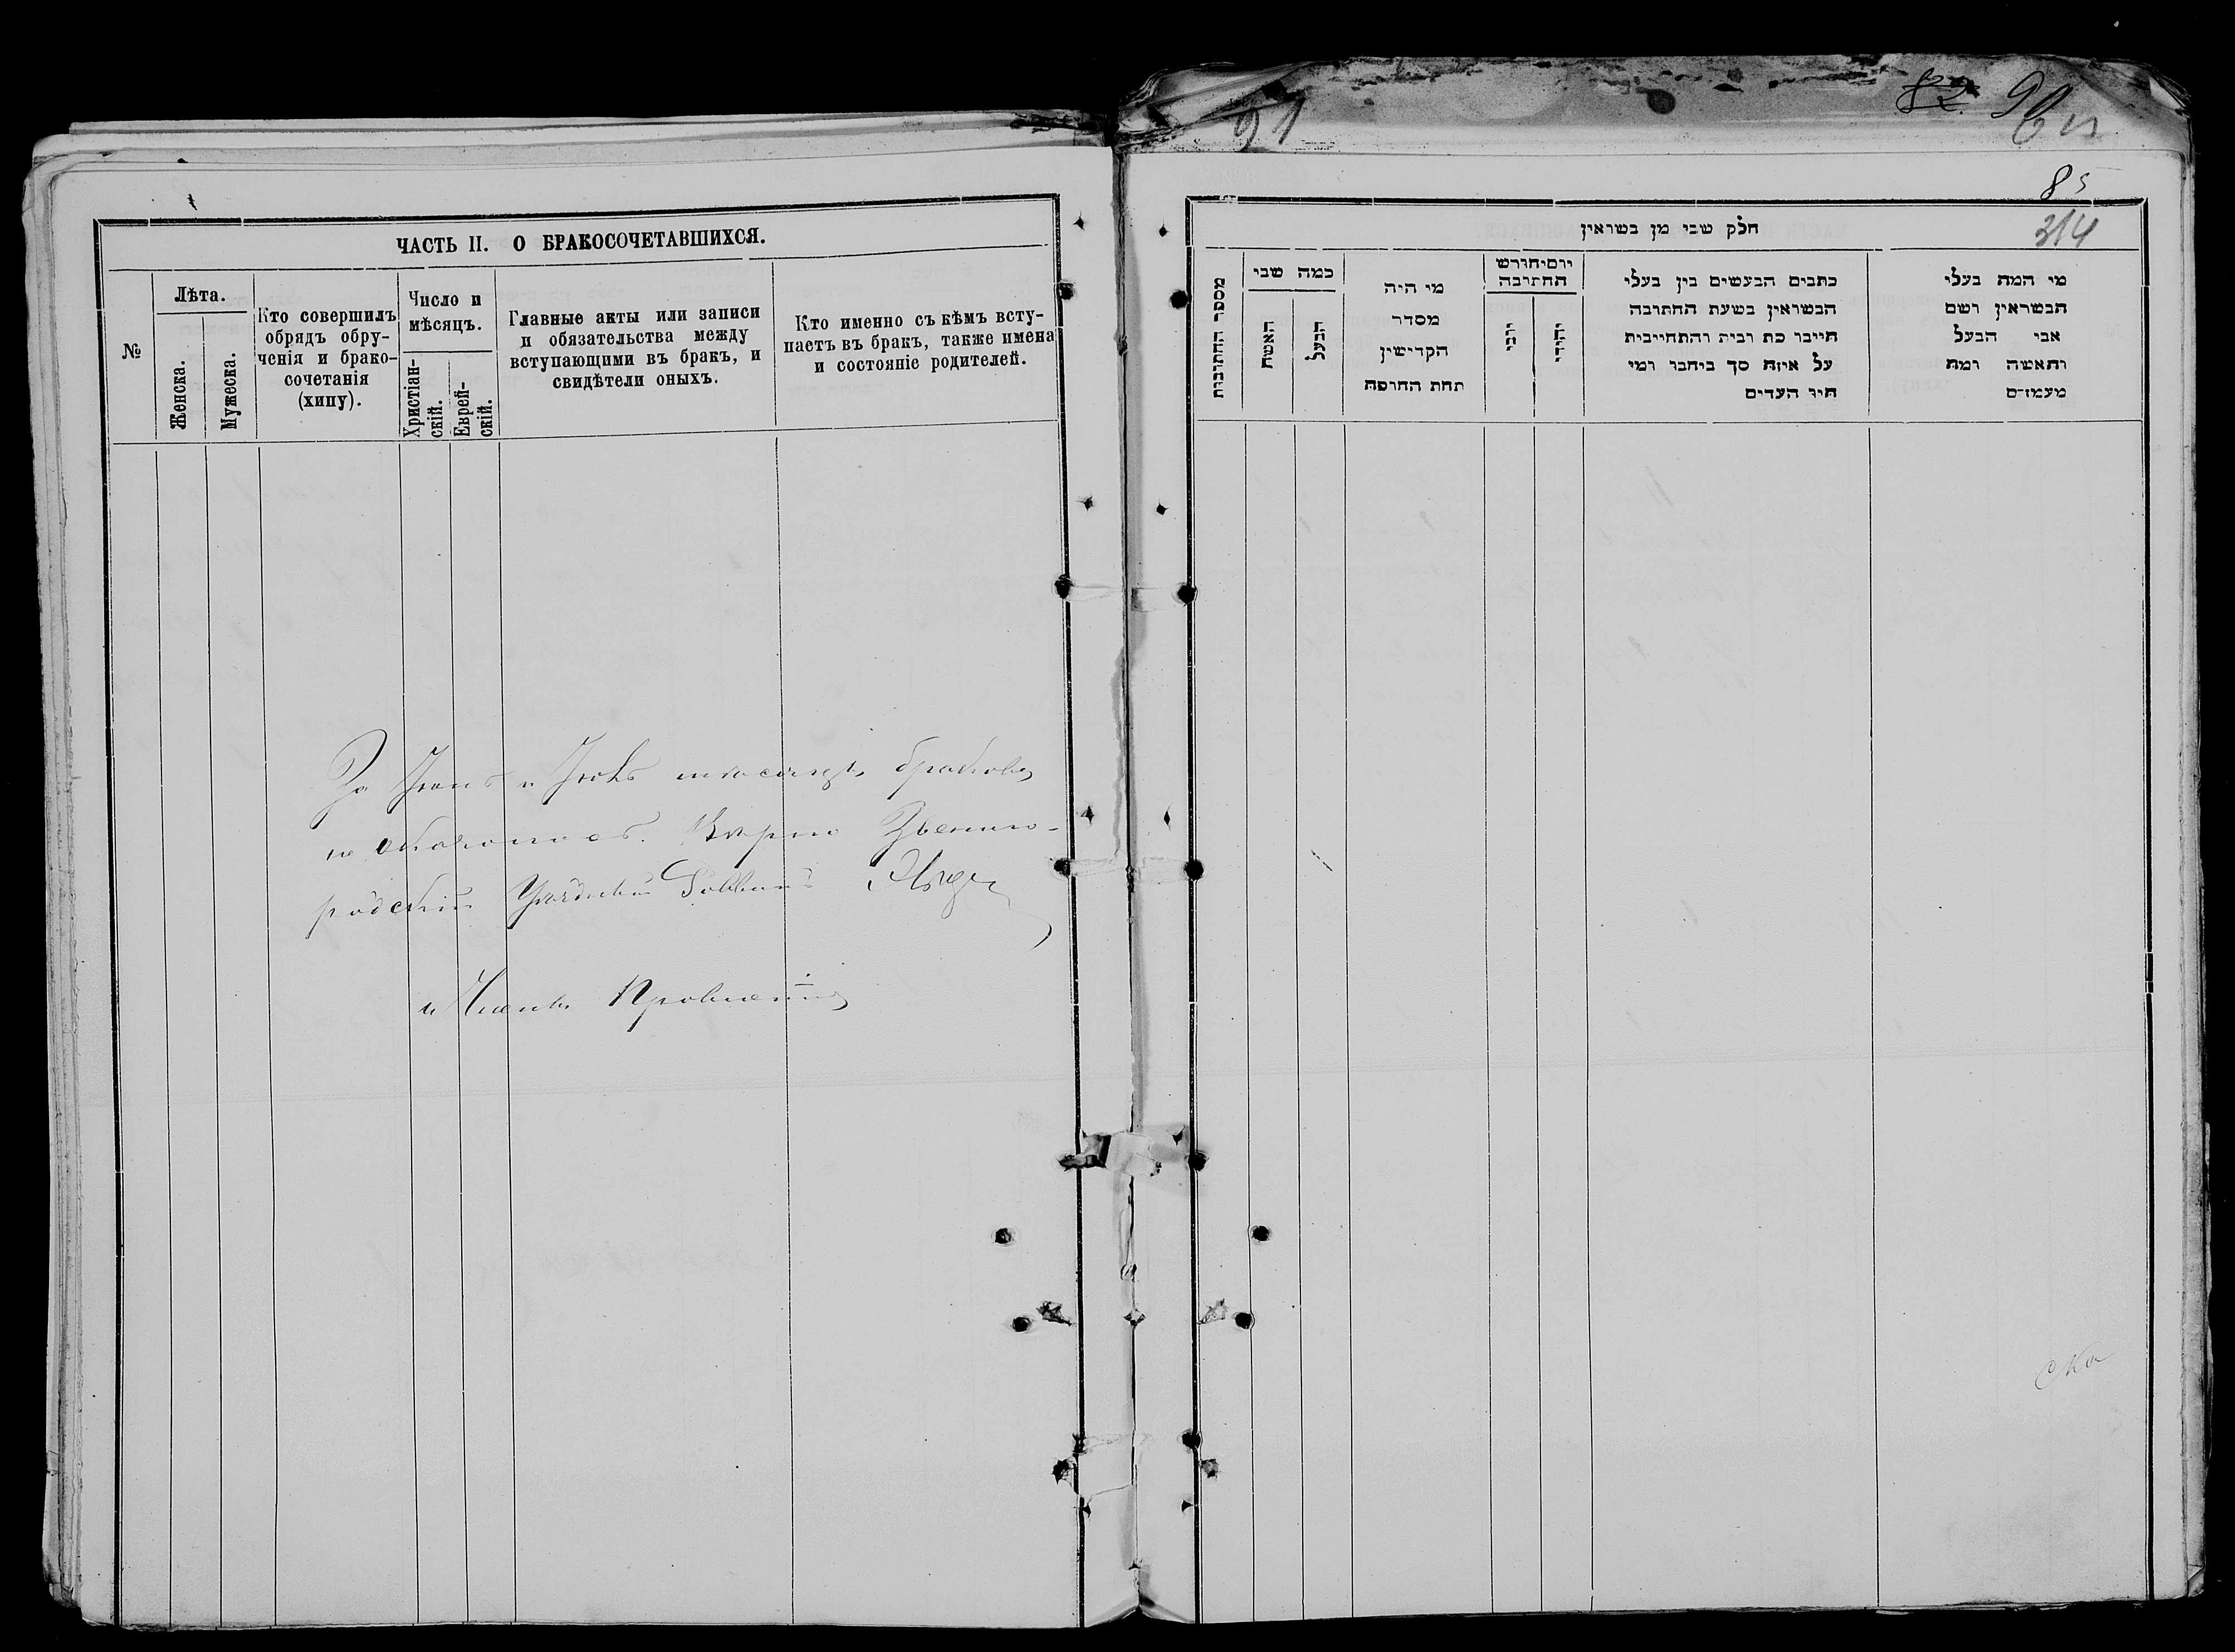 82 90
91
85
314
ЧАСТЬ II. О БРАКОСОЧЕТАВШИХСЯ.
№
Лѣта.
Женска.
Мужеска.
Кто совершилъ
обрядъ обру-
ченія и брако-
сочетанія
(хипу).
Число и
мѣсяцъ.
Христіан-
скій.
Еврей-
скій.
Главные акты или записи
и обязательства между
вступающими въ бракъ, и
свидѣтели оныхъ.
Кто именно съ кѣмъ всту-
паетъ въ бракъ, также имена
и состояніе родителей.
За Іюнь и Іюль мѣсяцъ браковъ
не оказалось. Вѣрно Звениго-
родскій Уѣздный Раввинъ
и Членъ Правленія
חלק שבי מן בשואין
מספר החתובות
כמה שבי
האשה
הבעל
מי היה
מסדר
הקדישין
תחת החופה
יום יחודש
החתובה
יהודי
כתבים הבעשים בין בעלי
הבשואין בשעת החתובה
חייבו כת רבית והתחייבית
על איזה סך ביחבו ומי
חיו העדים
מי המה בעלי
הבשואין ושם
אבי הבעל
והאשה ומה
מעמדם
ска